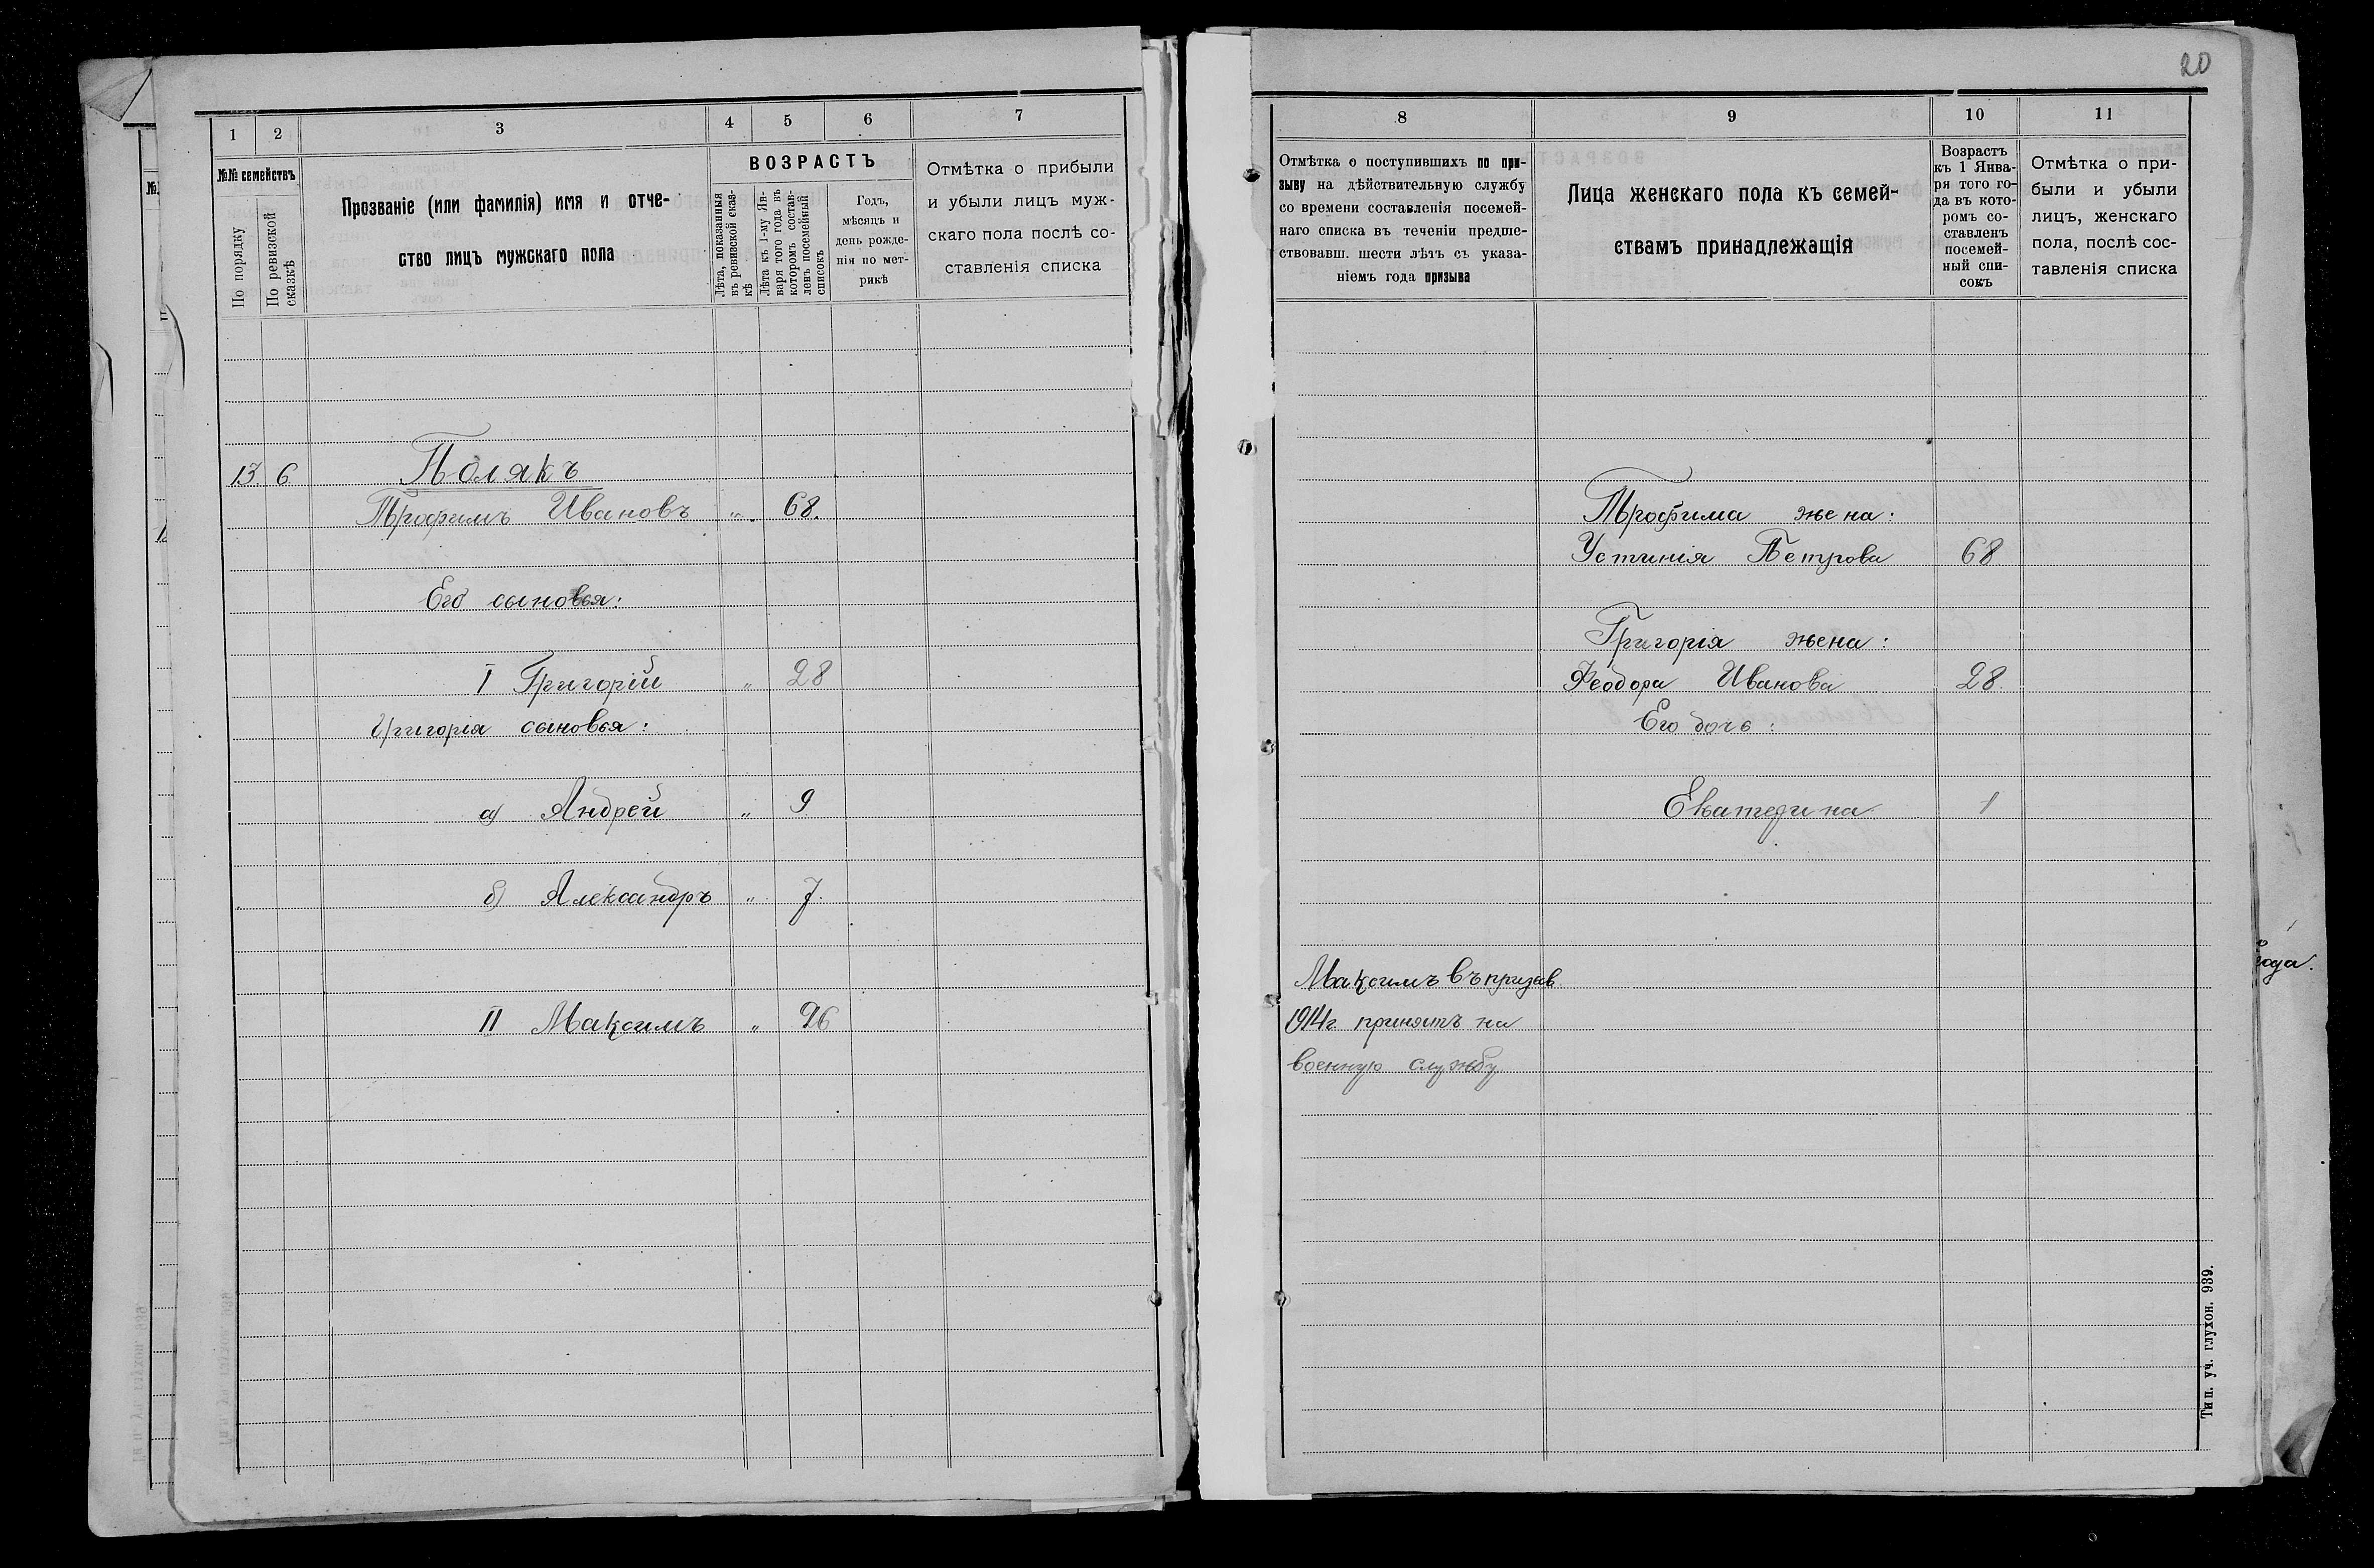 20
1 2 3 4 5 6 7
№№ семействъ
По порядку
По ревизской сказкѣ
Прозваніе (или фамилія) имя и отче-
ство лицъ мужскаго пола
ВОЗРАСТЪ
Лѣта, показанныя
въ ревизской сказ-
кѣ
Лѣта къ 1-му Ян-
варя того года въ
которомъ состав-
ленъ посемейный
списокъ
Годъ,
мѣсяцъ и
день рожде-
нія по мет-
рикѣ
Отмѣтка о прибыли
и убыли лицъ муж-
скаго пола послѣ со-
ставленія списка
13 6 Полякъ
Трофимъ Ивановъ „ 68.
Его сыновья:
I Григорій „ 28
Григорія сыновья:
а) Андрей „ 9
б) Александръ „ 7.
II Максимъ „ 26
8 9 10 11
Отмѣтка о поступившихъ по при-
зыву на дѣйствительную службу
со времени составленія посемей-
наго списка въ теченіи предше-
ствовавш. шести лѣтъ съ указа-
ніемъ года призыва
Лица женскаго пола къ семей-
ствамъ принадлежащія
Возрастъ
къ 1 Янва-
ря того го-
да въ кото-
ромъ со-
ставленъ
посемей-
ный спи-
сокъ
Отмѣтка о при-
были и убыли
лицъ, женскаго
пола, послѣ сос-
тавленія списка
Трофима жена:
Устинія Петрова 68
Григорія жена:
Феодора Иванова 28.
Его дочь:
Екатерина 1
Максимъ въ призыв
1914г. принятъ на
военную службу
Тип. уч. глухон. 939.